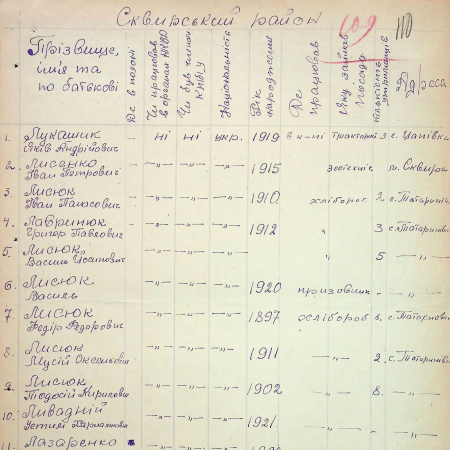 Сквирський район
109
110
Прізвище, ім'я та по батькові
Де в полоні
Чи працював в органах НКВД
Чи був членом КП(б)У
Національність
Рік народження
Де працював
Яку займав посаду
кількість утриманців
Адреса
1. Лукашик Яків Андрійович – ні ні укр. 1919 в к-пі Тракторист 3 с.
2. Лисенко Іван Петрович – –„– –„– –„– 1915 зоотехнік м. Сквира
3. Лисюк Іван Панасович – –„– –„– –„– 1910 хлібороб 2
4. Лавринюк Григор Павлович – –„– –„– –„– 1912 „ 3
5. Лисюк Василь – –„– –„– –„– „ 5 –„–
6. Лисюк Василь – –„– –„– –„– 1920 призовник - –„–
7. Лисюк Федір Федорович – –„– –„– –„– 1897 хлібороб
8. Лисюк Мусій – –„– –„– –„– 1911 –„– 2
9. Лисюк Тодосій Кирилович – –„– –„– –„– 1902 –„– 8. –„–
10. Ливадній – –„– –„– –„– 1921. –„– - –„–
11. Лазаренко